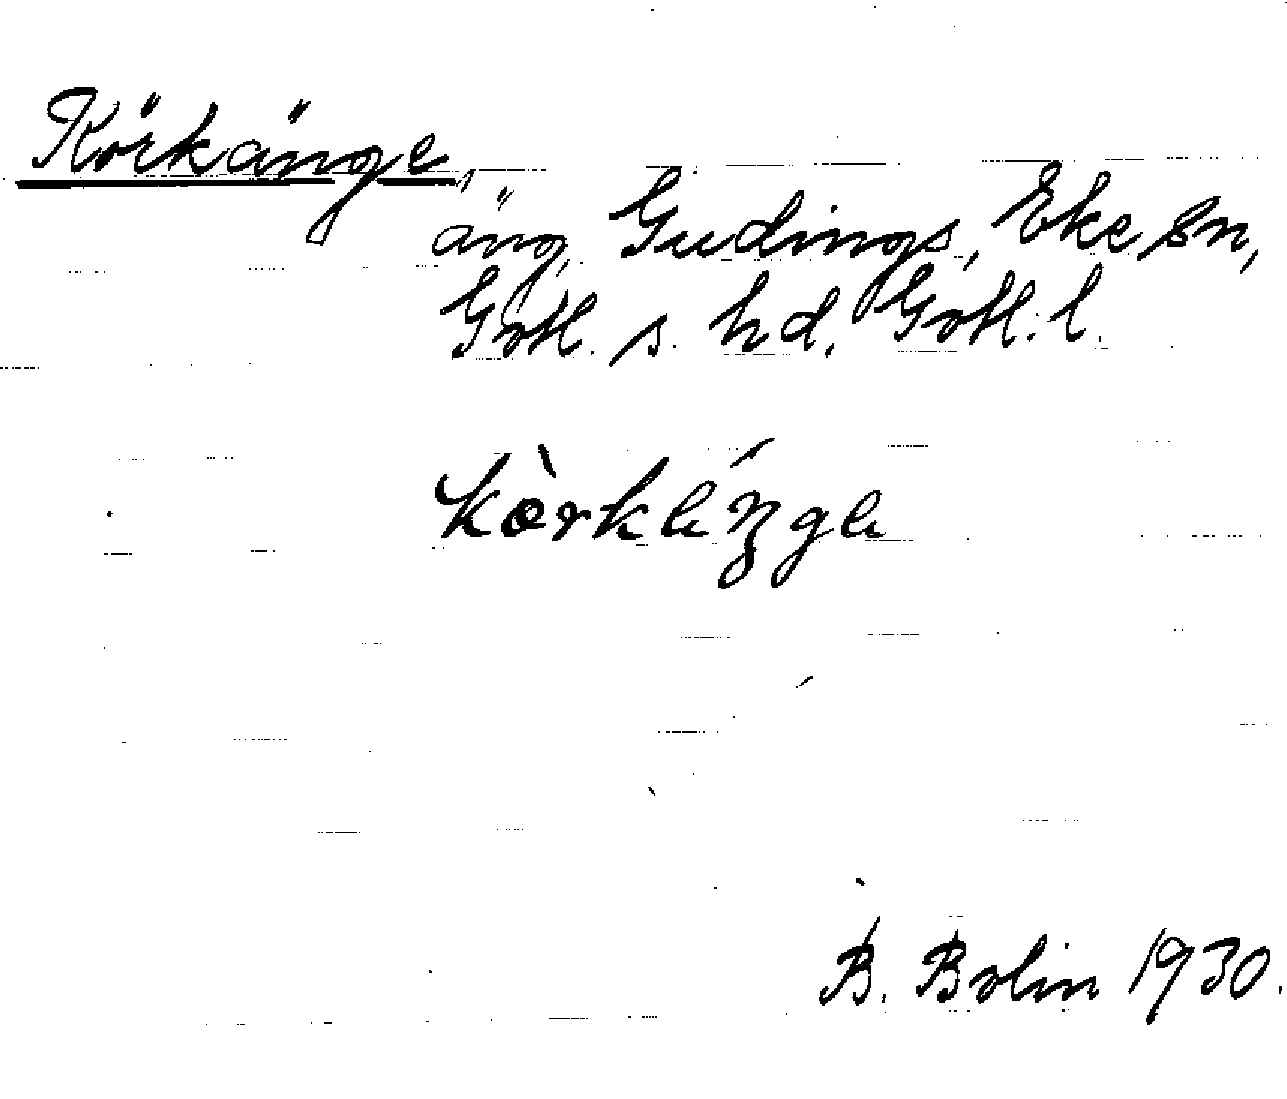 Körkänge,
äng, Gudings, Eke sn,
Gotl. s. hd. Gotl. l.
kòrkéŋge
B. Bolin 1930.